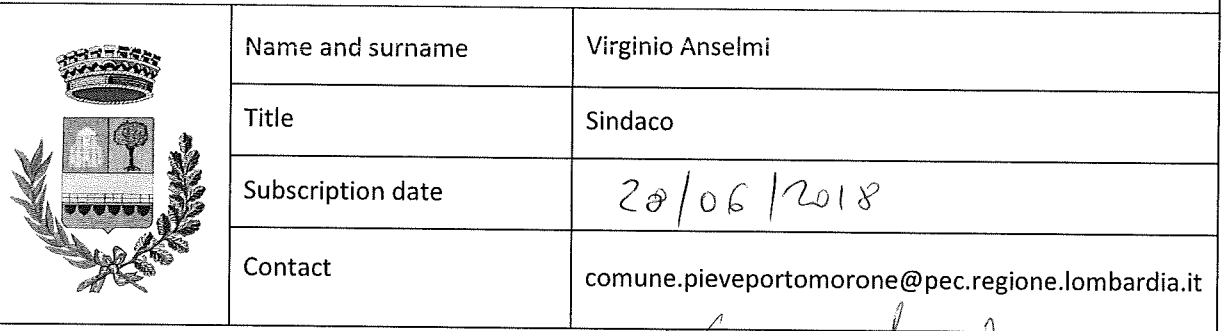 Name and surname Virginio Anselmi
Title Sindaco
Subscription date 28/06/2018
Contact comune.pieveportomorone@pec.regione.lombardia.it